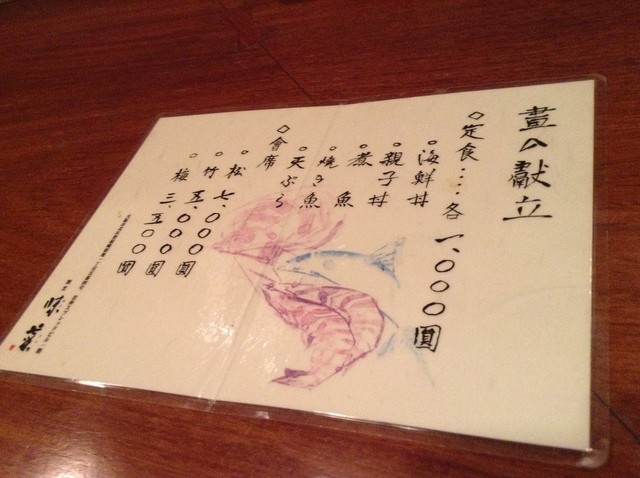 晝の獻立
◇定食‥‥各一、〇〇〇圓
○海鮮丼
○親子丼
○煮魚
○焼き魚
○天ぷら
◇會席
○松 七、〇〇〇圓
○竹 五、〇〇〇圓
○梅 三、五〇〇圓